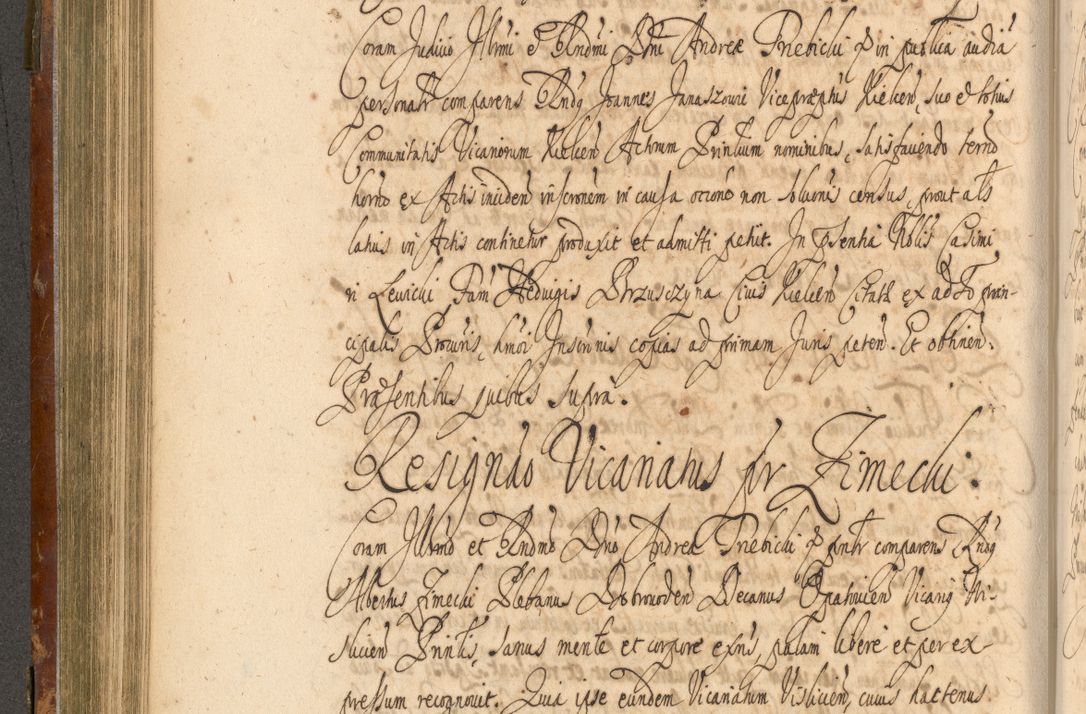 Coram Judicio Illrmi et Rndmi Dni Andreæ Trzebicki &c in publica audiã
personalr comparens Rndq Joannes Januszowi Vicepræptus Kielcen, suo et totius
Communitatis Vicariorum Kielcen Actorum Printium nominibus, satisfaciendo termo
horno ex Actis inciden inscronem in causa occone non solutionis census, prout als
latius in Actis continetur produxit et admitti petiit. In psentia Nblis Casimi
ri Lewicki Fam Hedvigis Brzusczyna Civis Kielcen Citatæ ex adto prin-
cipalis Procuris, hmoi Inscrinis copias ad primam Juris peten. Et obtinen.
Præsentibus quibus supra.
Resignão Vicariatus pr Zimecki.
Coram Illrmo et Rndmo Dno Andrea Trzebicki &c pntr comparens Rndq
Albertus Zimecki Plebanus Dobrowoden Decanus Opatovien Vicarıq Vi-
slicien Printis, sanus mente et corpore exns, palam libere et per ex
pressum recognovit. Quia ipse eundem Vicariatum Vislicien, cuius hactenus